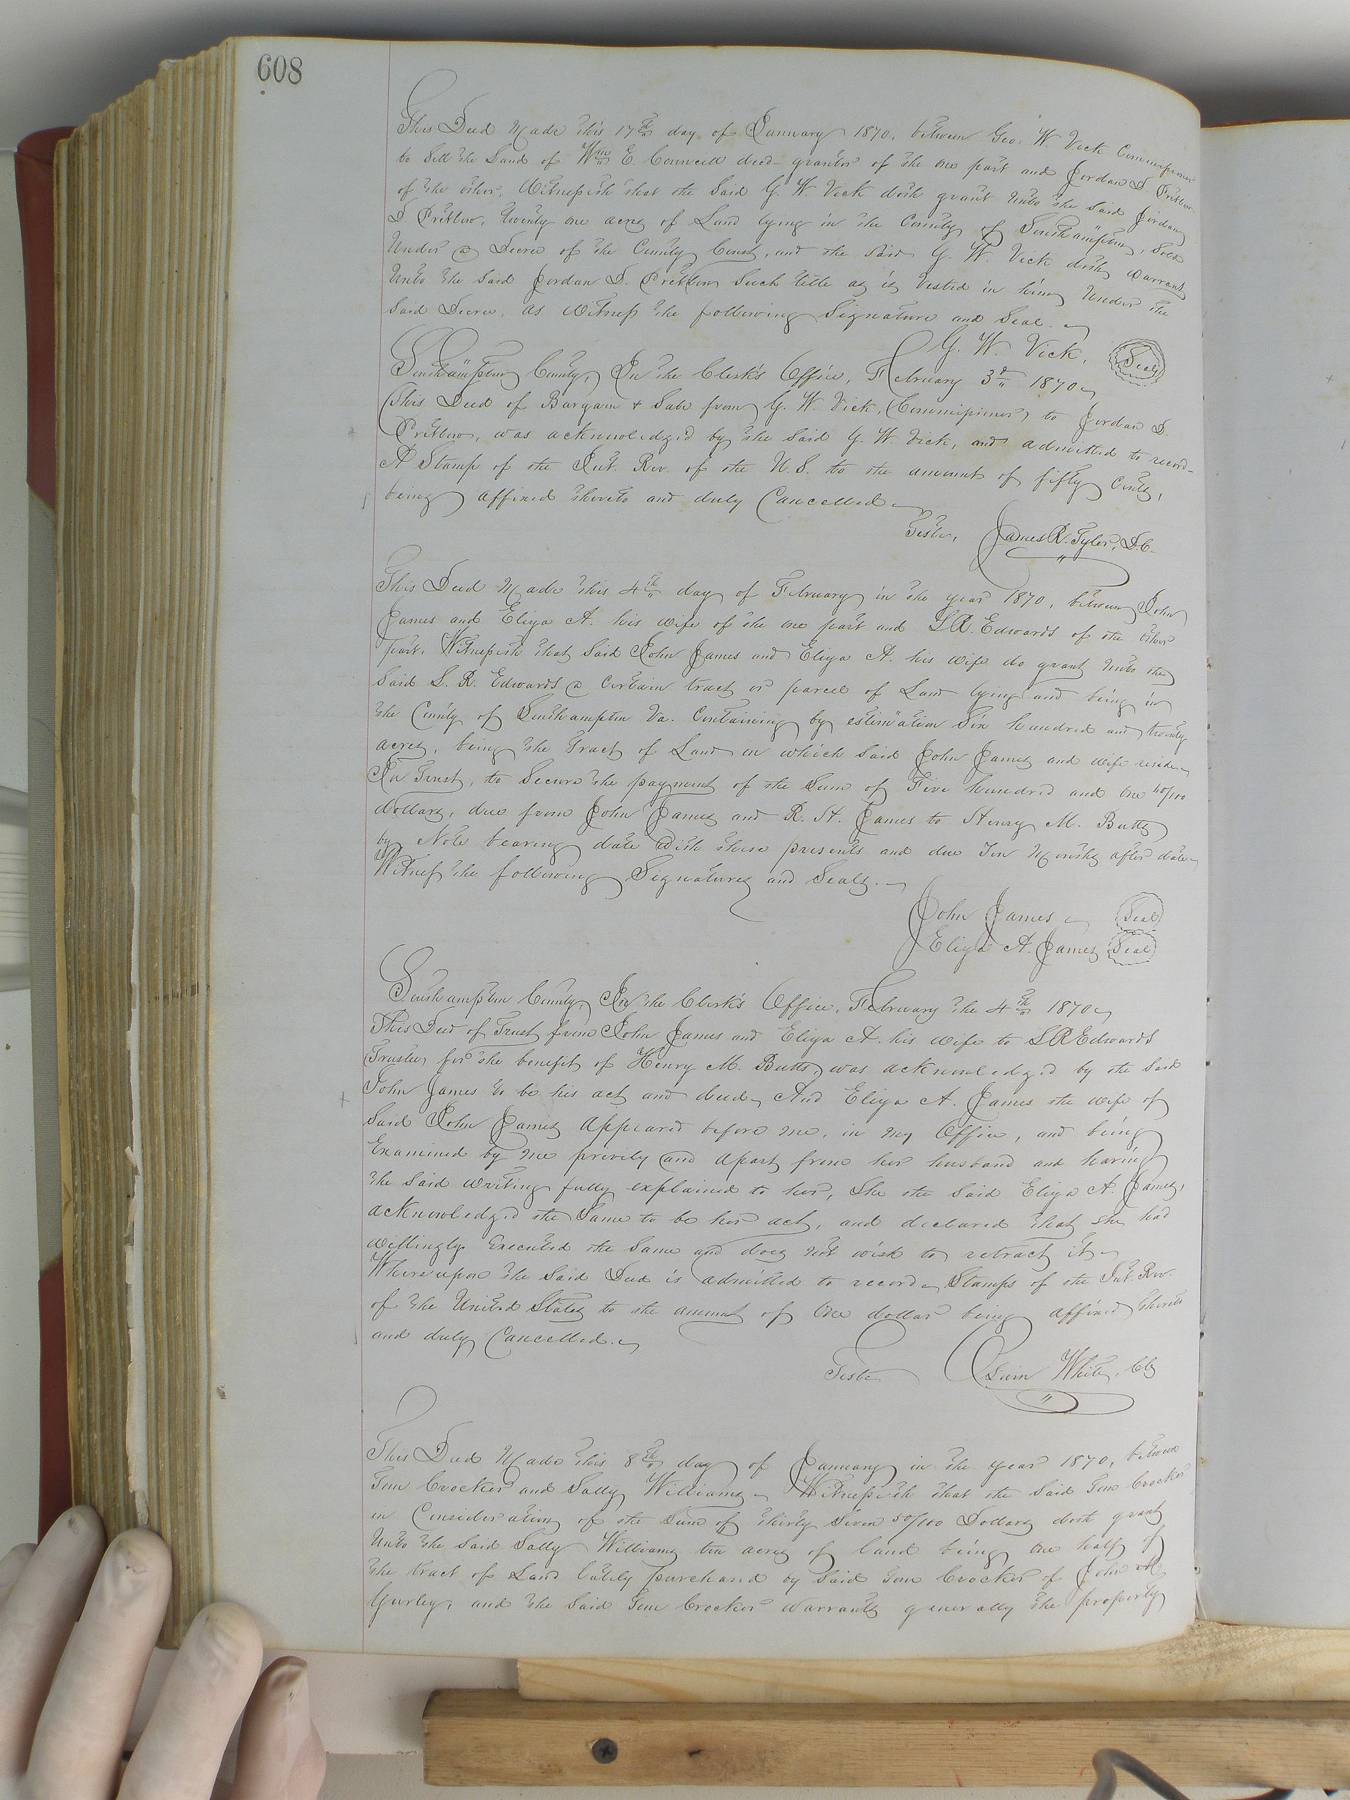 608
This Deed Made this 17th day of January 1870, between Geo. W Vick Commissioner
to Sell the Land of Wm E Councill decd grantor of the one part and Jordan D Pretlow
of the other. Witnesseth that the Said G. W. Vick doth grant unto the Said Jordan
D Pretlow, twenty one acres of Land lying in the County of Southampton, Sold
Under a Decree of the County Court, and the said G. W. Vick doth warrant
Unto the Said Jordan D. Pretlow Such title as is Vested in him Under the
Said Decree. As Witness the following Signature and Seal.
G. W. Vick, Seal
Southampton County, In the Clerk's Office, February 3d 1870
This Deed of Bargain & Sale from G. W. Vick, (Commissioner) to Jordan D.
Pretlow, was acknowledged by the Said G. W Vick, and admitted to record
A Stamp of the Int. Rev. of the U.S. to the amount of fifty Cents,
being affixed thereto and duly Cancelled
Teste, James R. Tyler, D.C.
This Deed Made this 4th day of February in the year 1870, between John
James and Eliza A. his wife of the one part and L R. Edwards of the other
part. Witnesseth that Said John James and Eliza A. his wife do grant unto the
Said L. R. Edwards a Certain tract or parcel of Land lying and being in
the County of Southampton Va. Containing by estimation Six hundred and twenty
acres, being the Tract of Land on which Said John James and wife reside
In Trust, to Secure the payment of the Sum of Five hundred and one 40/100
dollars, due from John James and R. H. James to Henry M. Butts
by Note bearing date With these presents and due Ten Months after date
Witness the following Signatures and Seals.
John James Seal
Eliza A. James Seal
Southampton County, In the Clerk's Office, February the 4th 1870
This Deed of Trust from John James and Eliza A. his wife to L R Edwards
Trustee, for the benefit of Henry M. Butts, was acknowledged by the Said
John James to be his act and deed, And Eliza A. James the wife of
Said John James Appeared before me, in my Office, and being
Examined by me privily and apart from her husband and having
the Said writing fully explained to her, She the Said Eliza A. James,
acknowledged the Same to be her act, and declared that she had
willingly Executed the Same and does not wish to retract it
Whereupon the Said Deed is admitted to record. Stamps of the Int Rev.
of the United States to the amount of One dollar being affixed thereto
and duly Cancelled.
Teste Edwin White, Clk
This Deed Made this 8th day of January in the year 1870, between
Tom Crocker and Sally Williams. Witnesseth that the Said Tom Crocker
in Consideration of the Sum of thirty Seven 50/100 Dollars doth grant
Unto the Said Sally Williams ten acres of land being one half of
the tract of Land lately purchased by Said Tom Crocker of John M
Gurley, and the Said Tom Crocker Warrants generally the property